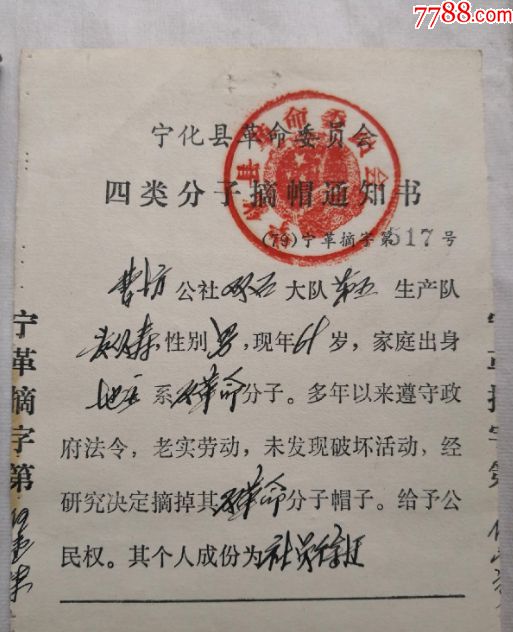 7788.com
宁化县革命委员会
四类分子摘帽通知书
(79)宁革摘字第517号
曹坊公社双石大队第五生产队
性别男,现年61岁,家庭出身
地主系反革命分子。多年以来遵守政
府法令,老实劳动,未发现破坏活动,经
研究决定摘掉其反革命分子帽子。给予公
民权。其个人成份为社员
宁革摘字第